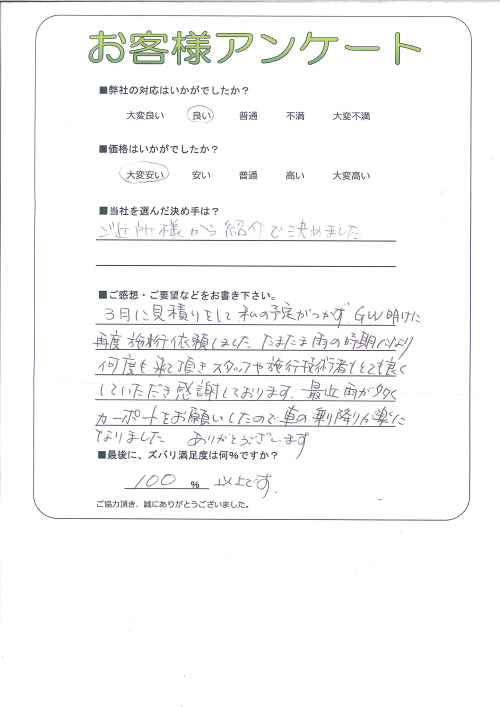 お客様アンケート
■弊社の対応はいかがでしたか？
大変良い 良い 普通 不満 大変不満
■価格はいかがでしたか？
大変安い 安い 普通 高い 大変高い
■当社を選んだ決め手は？
ご近所様から紹介で決めました
■ご感想・ご要望などをお書き下さい。
3月に見積りをして私の予定がつかず、GW明けに
再度施行依頼しました たまたま雨の時期になり
何度も来て頂きスタッフや施行技術者もとても良く
していただき感謝しております。最近雨が多く
カーポートをお願いしたので車の乗り降りが楽に
なりました ありがとうございます
■最後に、ズバリ満足度は何%ですか？
100 % 以上です。
ご協力頂き、誠にありがとうございました。